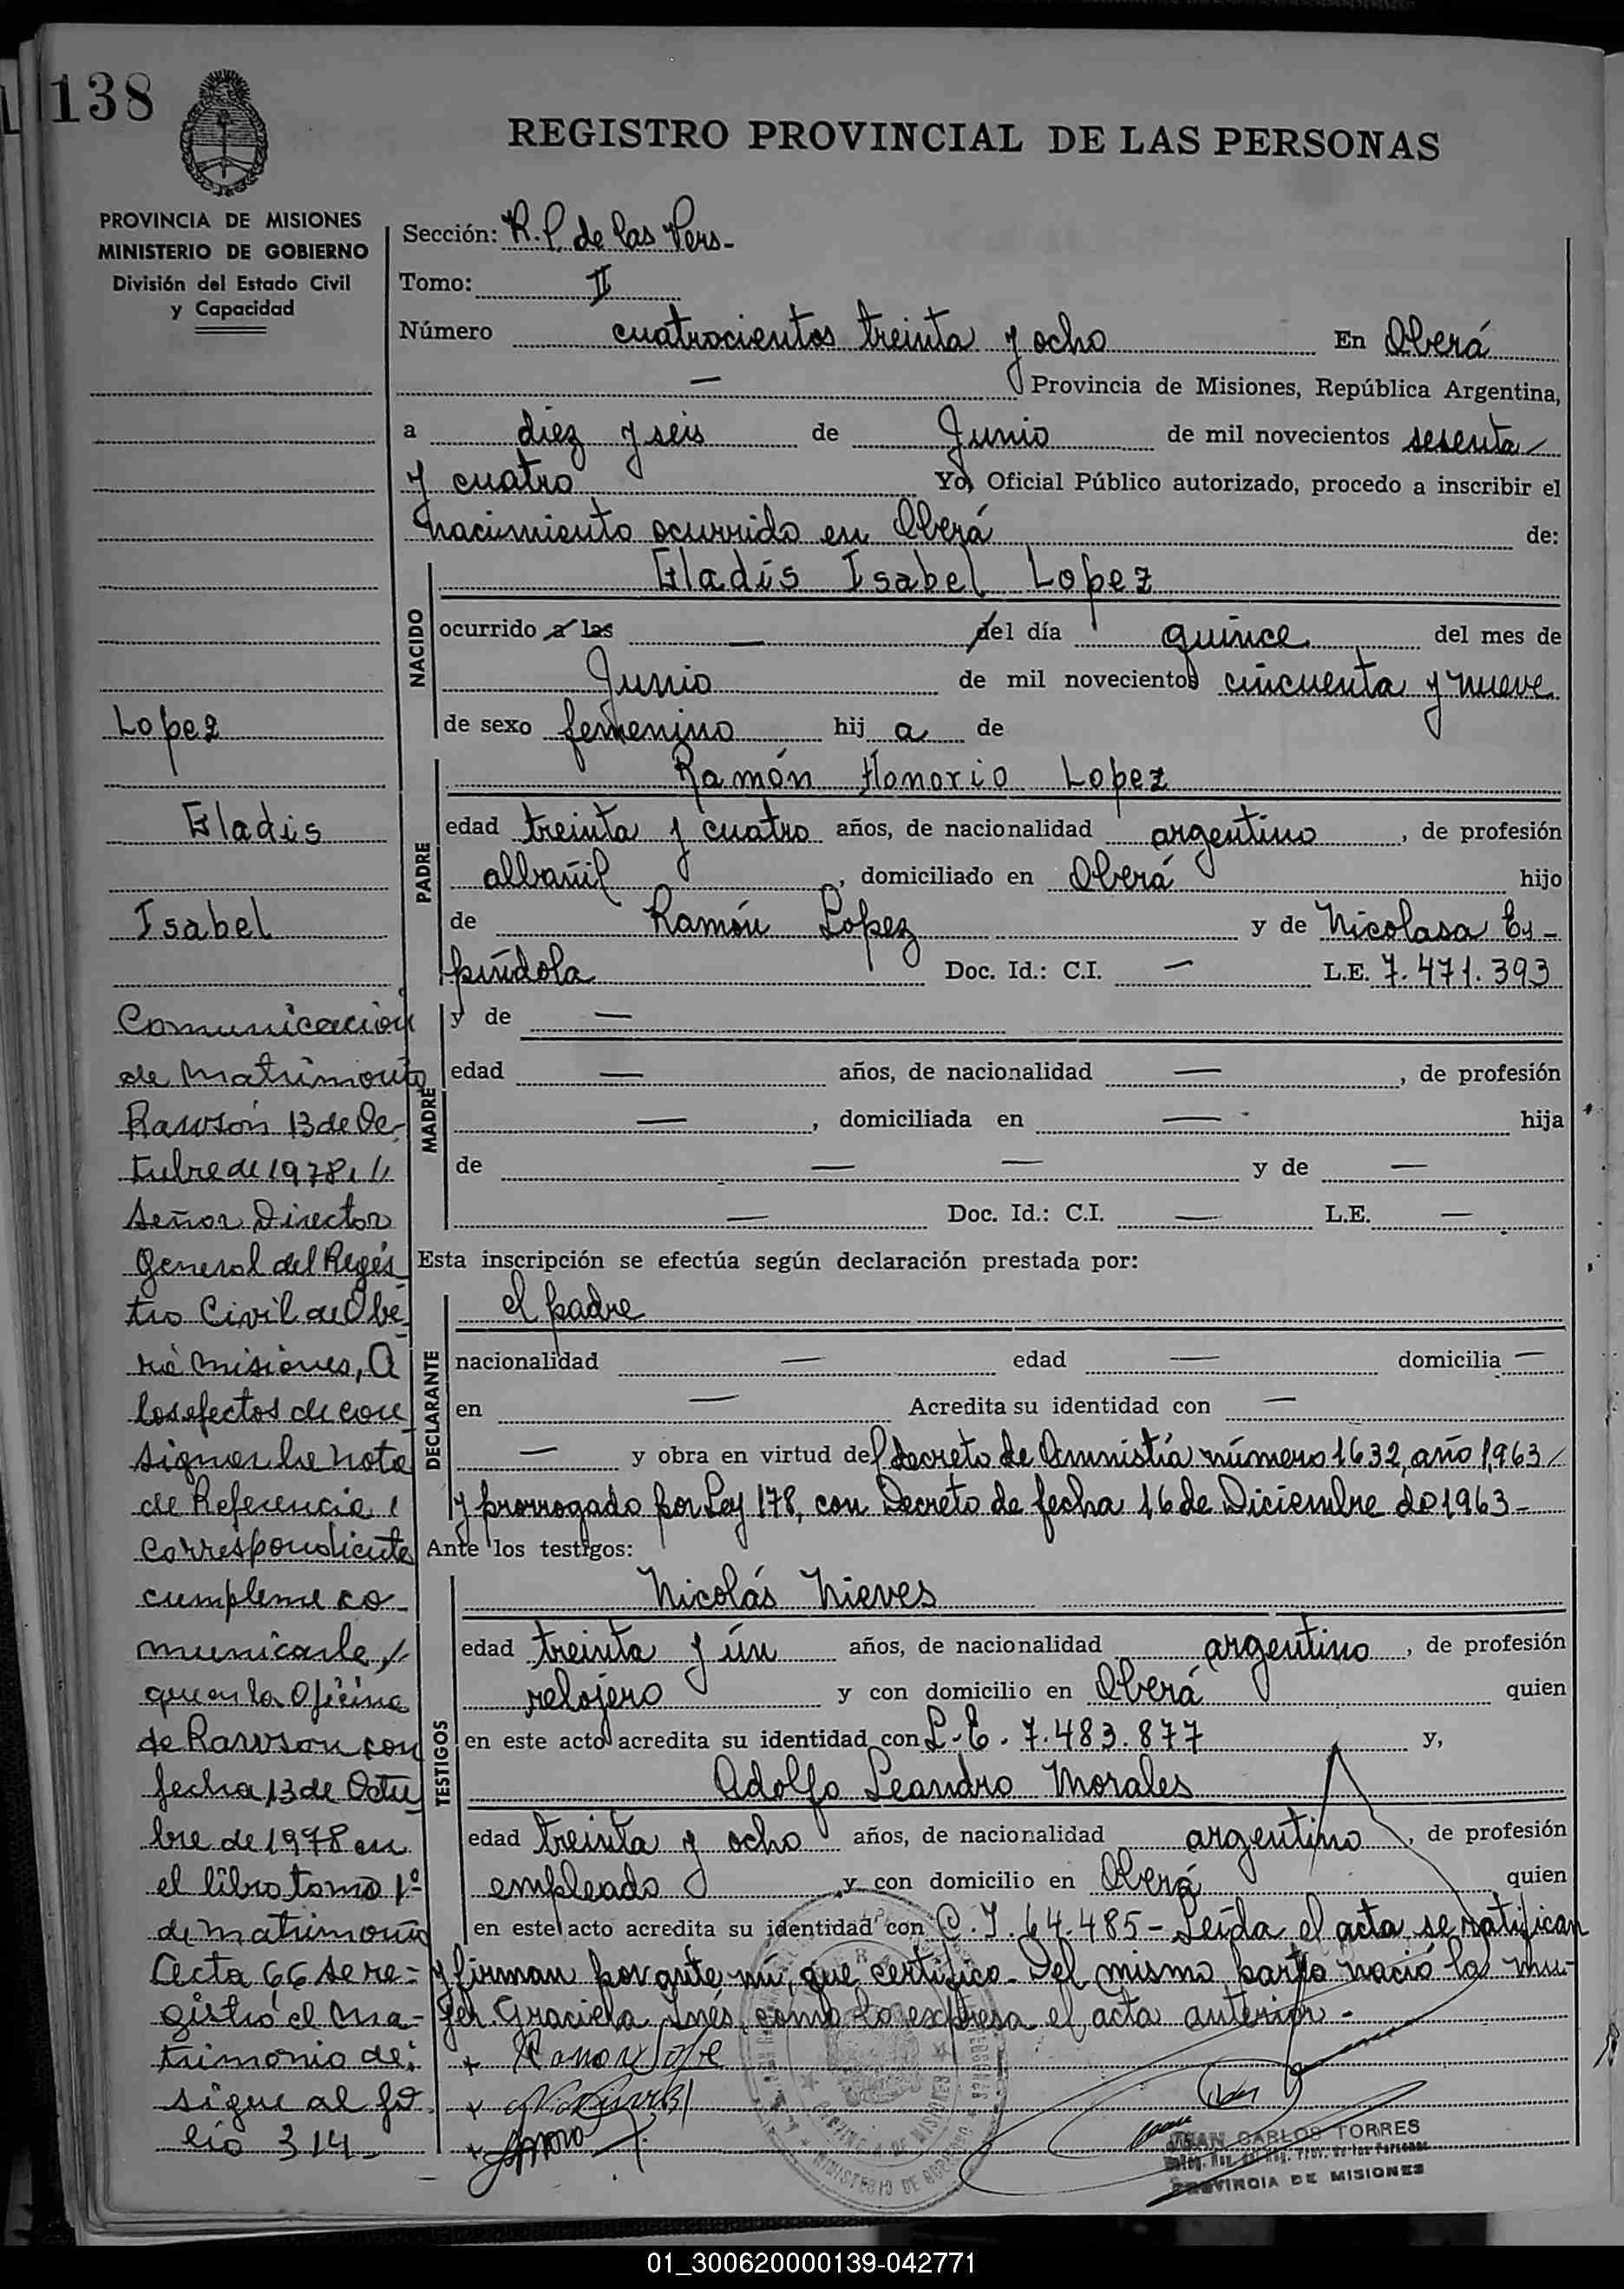 138
REGISTRO PROVINCIAL DE LAS PERSONAS
PROVINCIA DE MISIONES
MINISTERIO DE GOBIERNO
División del Estado Civil
y Capacidad
Lopez
Gladis
Isabel
Comunicación
de Matrimonio
Rawson 13 de Oc-
tubre de 1978. //
Señor Director
General del Regis
tro Civil de Obe-
rá Misiones, A
los efectos de con
signar la nota
de Referencia
correspondiente
cumpleme co-
municarle,
que en la Oficina
de Rawson con
fecha 13 de Octu
bre de 1978 en
el libro tomo 1º-
de matrimonio
Acta 66 se re-
gistró el ma-
trimonio de:
sigue al fo
lio 314-
Sección: R.P. de las Pers-
Tomo: II
Número cuatrocientos treinta y ocho En Oberá
— Provincia de Misiones, República Argentina,
a diez y seis de Junio de mil novecientos sesenta
y cuatro Yo, Oficial Público autorizado, procedo a inscribir el
nacimiento ocurrido en Oberá de:
NACIDO
Gladis Isabel Lopez
ocurrido a las — del día quince del mes de
Junio de mil novecientos cincuenta y nueve
de sexo femenino hij a de
PADRE
Ramón Honorio Lopez
edad treinta y cuatro años, de nacionalidad argentino, de profesión
albañil, domiciliado en Oberá hijo
de Ramón Lopez y de Nicolasa Es-
píndola Doc. Id.: C.I. — L.E. 7.471.393
MADRE
y de —
edad — años, de nacionalidad —, de profesión
—, domiciliada en — hija
de — — y de —
— Doc. Id.: C.I. — L.E. —
Esta inscripción se efectúa según declaración prestada por:
DECLARANTE
el padre
nacionalidad — edad — domicilia —
en — Acredita su identidad con —
— y obra en virtud del decreto de Amnistía número 1632, año 1963
y prorrogado por Ley 178, con Decreto de fecha 16 de Diciembre de 1963-
Ante los testigos:
TESTIGOS
Nicolás Nieves
edad treinta y ún años, de nacionalidad argentino, de profesión
relojero y con domicilio en Oberá quien
en este acto acredita su identidad con L.E. 7.483.877 y,
Adolfo Leandro Morales
edad treinta y ocho años, de nacionalidad argentino, de profesión
empleado y con domicilio en Oberá quien
en este acto acredita su identidad con C.I. 64.485- Leída el acta se ratifican
y firman por ante mí, que certifico- Del mismo parto nació la mu-
jer Graciela Inés, como lo expresa el acta anterior-
JUAN CARLOS TORRES
PROVINCIA DE MISIONES
01_300620000139-042771